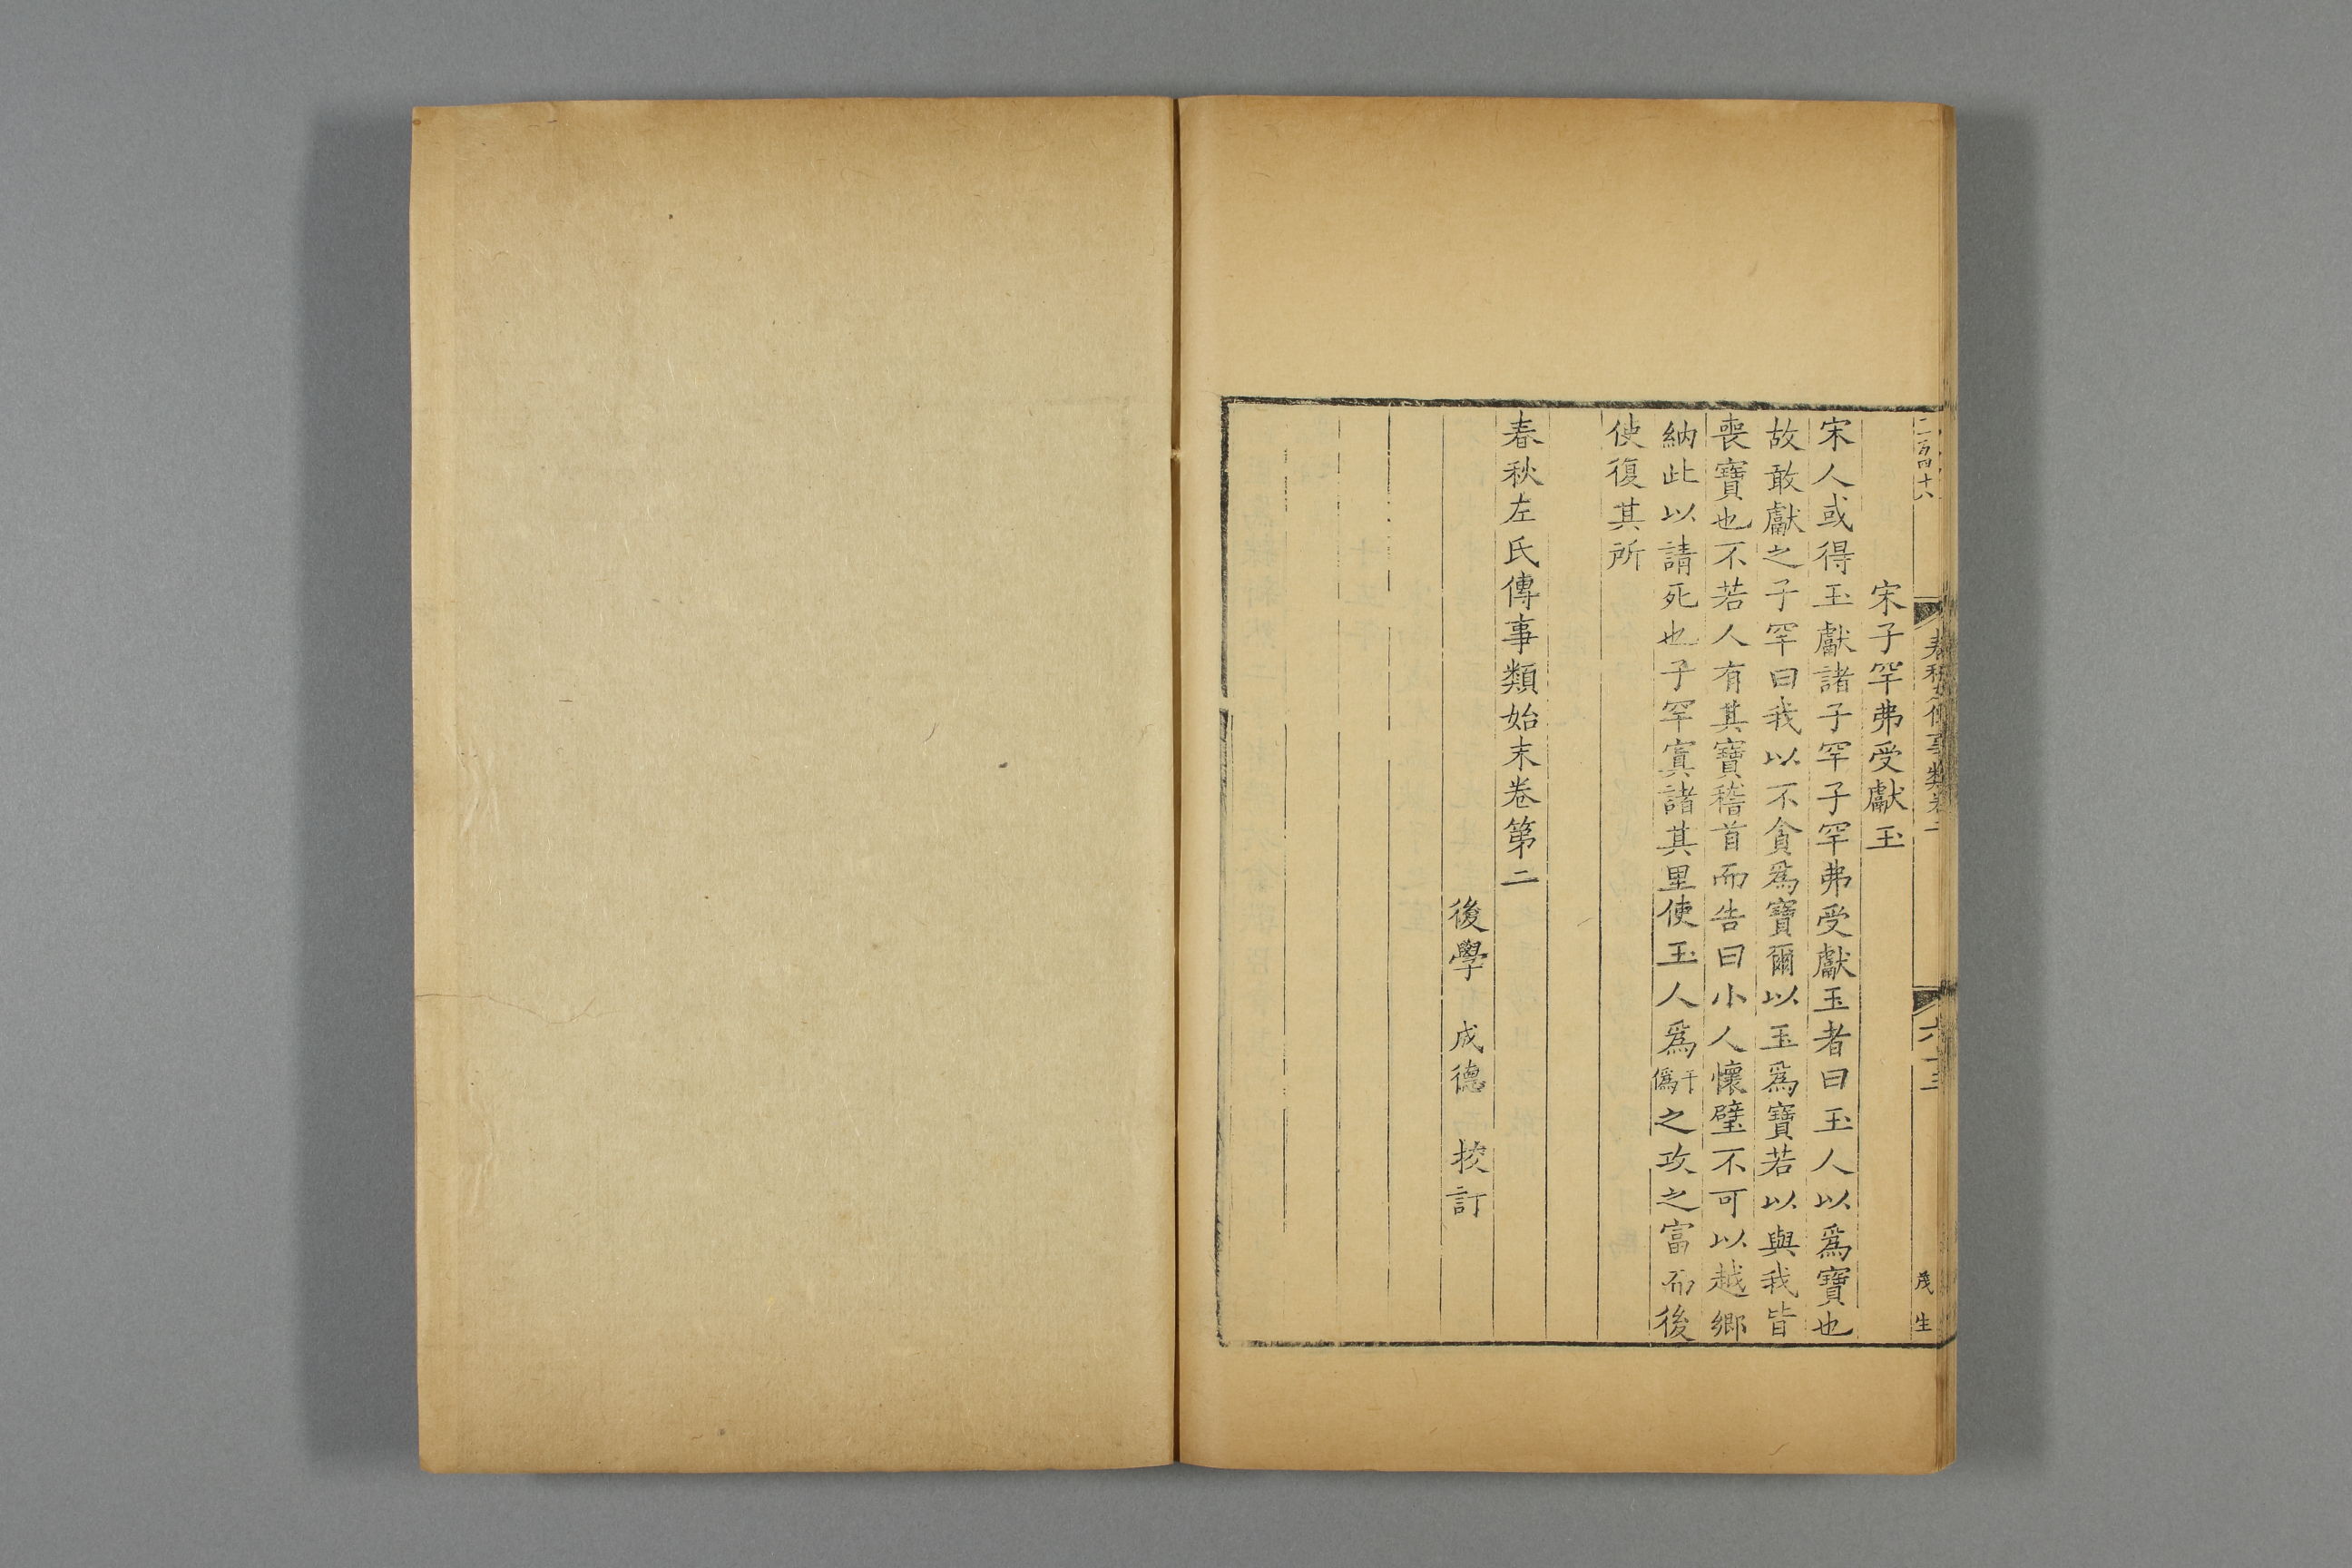 二百四十八
春秋左傳事類卷二
六十三
茂生
宋子罕弗受獻玉
宋人或得玉獻諸子罕子罕弗受獻玉者曰玉人以爲寶也
故敢獻之子罕曰我以不貪爲寶爾以玉爲寶若以與我皆
喪寶也不若人有其寶稽首而告曰小人懷璧不可以越鄉
納此以請死也子罕寘諸其里使玉人爲于僞之攻之富而後
使復其所
春秋左氏傳事類始末卷第二
後學 成德 挍訂